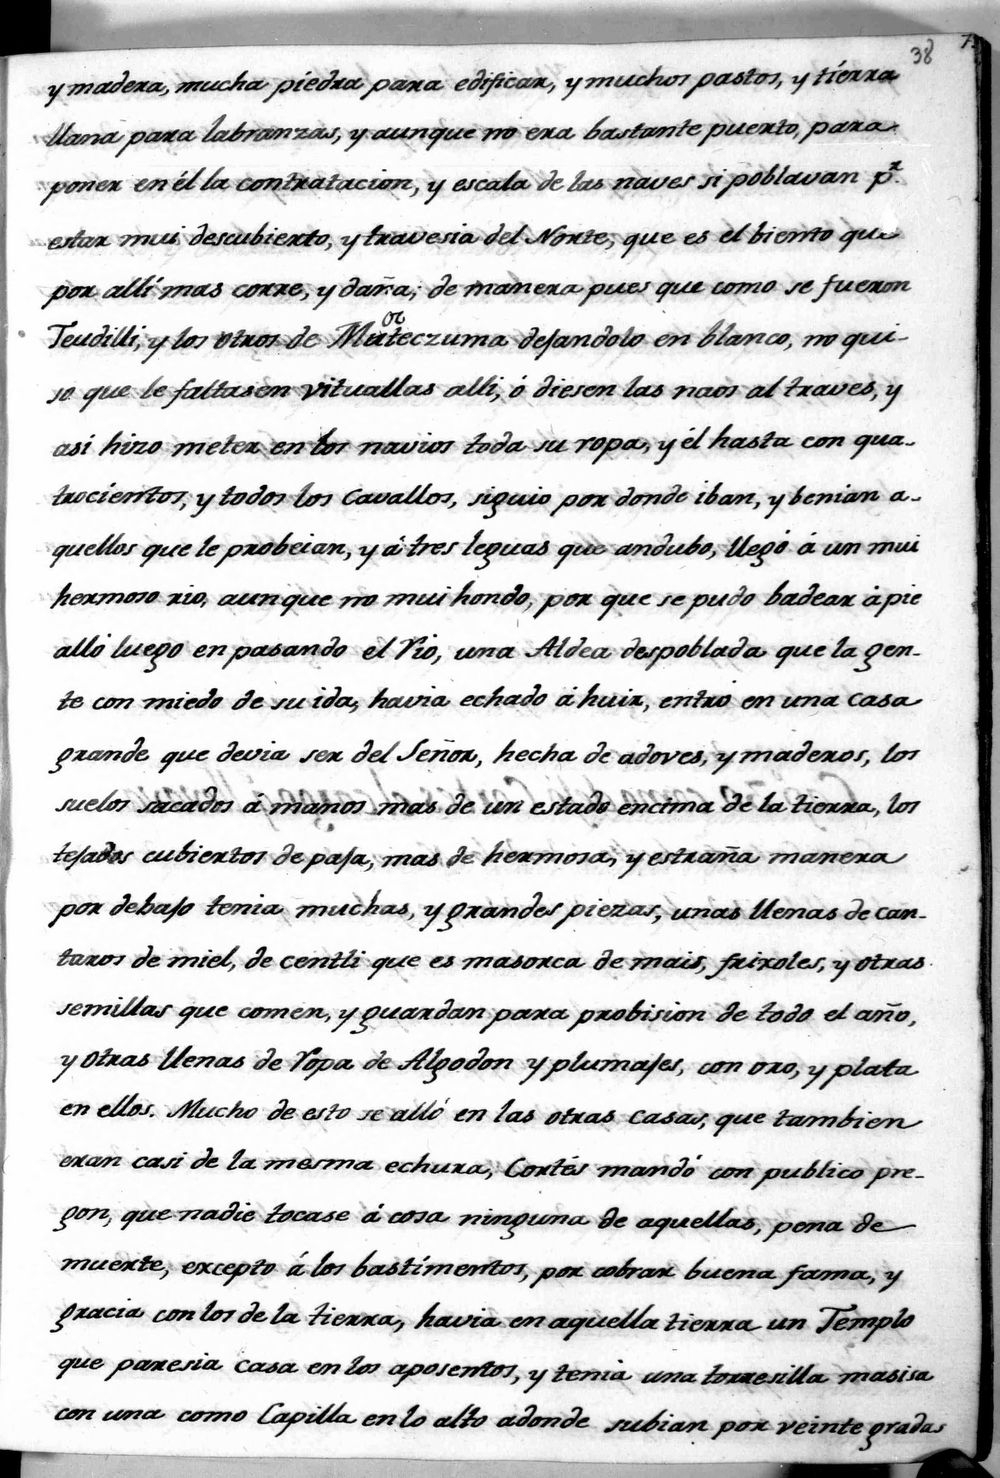 38
y madera, mucha piedra para edificar, y muchos pastos, y tierra
llana para labranzas, y aunque no era bastante puerto, para
poner en él la contratacion, y escala de las naves si poblavan pr.
estar mui descubierto, y travesia del Norte, que es el biento que
por allí mas corre, y daña; de manera pues que como se fueron
Teudilli, y los otros de Muteczuma dejandolo en blanco, no qui-
so que le faltasen vituallas alli, ó diesen las naos al traves, y
asi hizo meter en los navios toda su ropa, y él hasta con qua-
trocientos, y todos los cavallos, siguio por donde iban, y benian a-
quellos que le probeian, y á tres leguas que andubo, llegó á un mui
hermoso rio, aunque no mui hondo, por que se pudo badear á pie
alló luego en pasando el Rio, una Aldea despoblada que la gen-
te con miedo de su ida, havia echado á huir, entró en una casa
grande que devia ser del Señor, hecha de adoves, y maderos, los
suelos sacados á manos mas de un estado encima de la tierra, los
tejados cubiertos de paja, mas de hermosa, y estraña manera
por debajo tenia muchas, y grandes piezas, unas llenas de can-
taros de miel, de centli que es masorca de mais, frixoles, y otras
semillas que comen, y guardan para probision de todo el año,
y otras llenas de Ropa de Algodon y plumajes, con oro, y plata
en ellos. Mucho de esto se alló en las otras casas, que tambien
eran casi de la mesma echura, Cortés mandó con publico pre-
gon, que nadie tocase á cosa ninguna de aquellas, pena de
muerte, excepto á los bastimentos, por cobrar buena fama, y
gracia con los de la tierra, havia en aquella tierra un Templo
que paresia casa en los aposentos, y tenia una torresilla masisa
con una como Capilla en lo alto adonde subian por veinte gradas